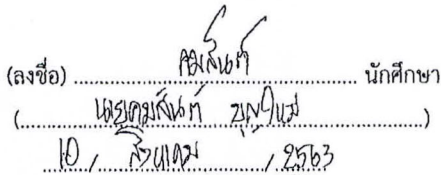 (ลงชื่อ) คมสันต์ นักศึกษา
(นายคมสันต์ บุญใหม่)
10 / สิงหาคม / 2563